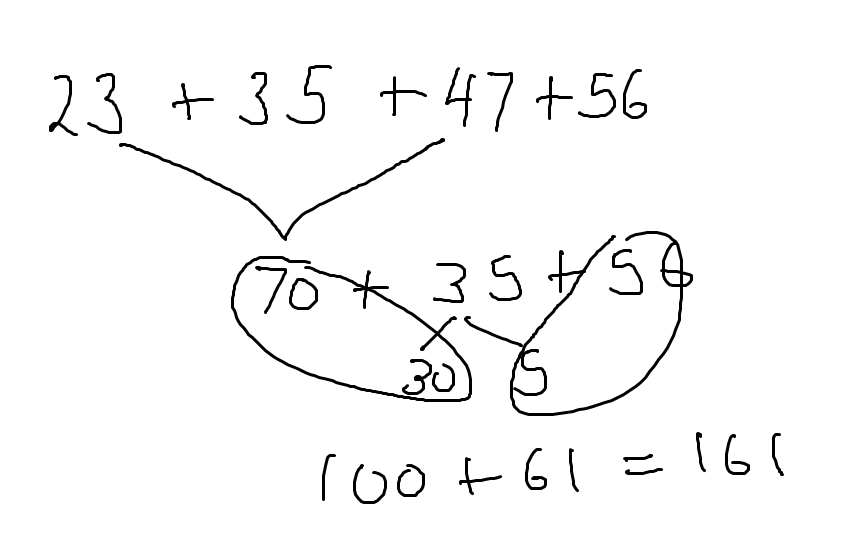 23 + 35 + 47 + 56
70 + 35 + 56
30 5
100 + 61 = 161